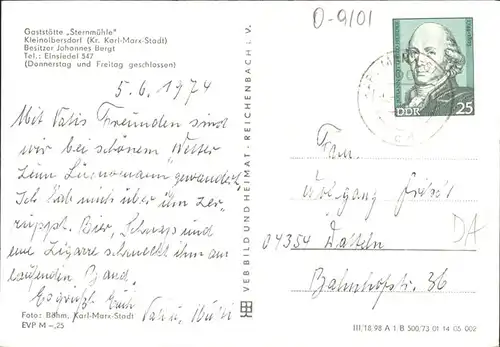 Gaststätte „Sternmühle"
Kleinolbersdorf (Kr. Karl-Marx-Stadt)
Besitzer Johannes Bergt
Tel.: Einsiedel 547
(Donnerstag und Freitag geschlossen)
5.6.1974
Mit Vatis Freunden sind
wir bei schönem Wetter
zum gewandert.
Ich hab mich über ihn
Bier, Schnaps und
eine Zigarre schmeckt ihm am
laufenden Band.
Es grüßt Euch
Vati, Mutti
Foto: Böhm, Karl-Marx-Stadt
EVP M –,25
VEB BILD UND HEIMAT · REICHENBACH I. V.
D-9101
DDR 25
Fam.
Wolfgang
04354 Datteln
Bahnhofstr. 36
DA
III/18/98 A 1 B 500/73 01 14 05 002